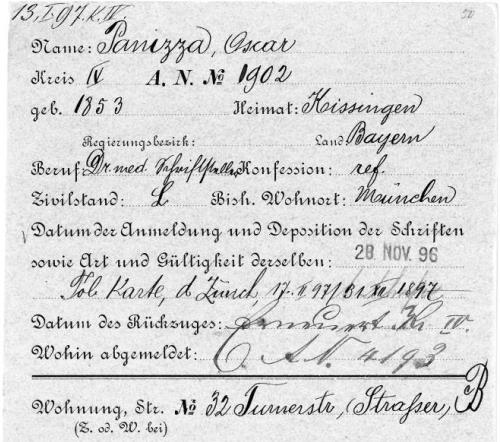 13. I. 97. K. IV 50
Name: Panizza, Oscar
Kreis IV A. N. № 1902
geb. 1853 Heimat: Kissingen
Regierungsbezirk: Land Bayern
Beruf: Dr. med. Schriftsteller Konfession: ref.
Zivilstand: L Bish. Wohnort: München
Datum der Anmeldung und Deposition der Schriften
sowie Art und Gültigkeit derselben: 28. NOV. 96
Tol. Karte, d Zürich 17. 97/31 1897
Datum des Rückzuges: Erneuert Kr. IV.
Wohin abgemeldet: A.N. 4193
Wohnung, Str. № 32 Turnerstr, (Strasser,) B
(Z. od. W. bei)